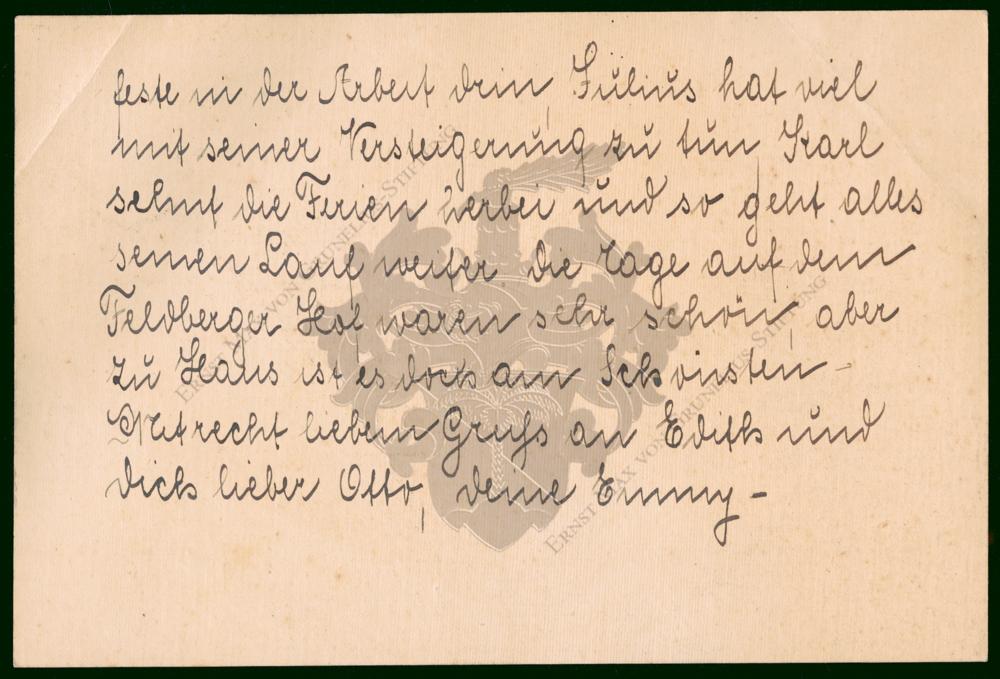 feste in der Arbeit drin, Julius hat viel
mit seiner Versteigerung zu tun, Karl
sehnt die Ferien herbei und so geht alles
seinen Lauf weiter. die Tage auf dem
Feldberger Hof waren sehr schön, aber
zu Haus ist es doch am Schönsten –
Mit recht liebem Gruß an Edith und
dich lieber Otto, deine Emmy –
ERNST MAX VON GRUNELIUS-STIFTUNG
ERNST MAX VON GRUNELIUS-STIFTUNG